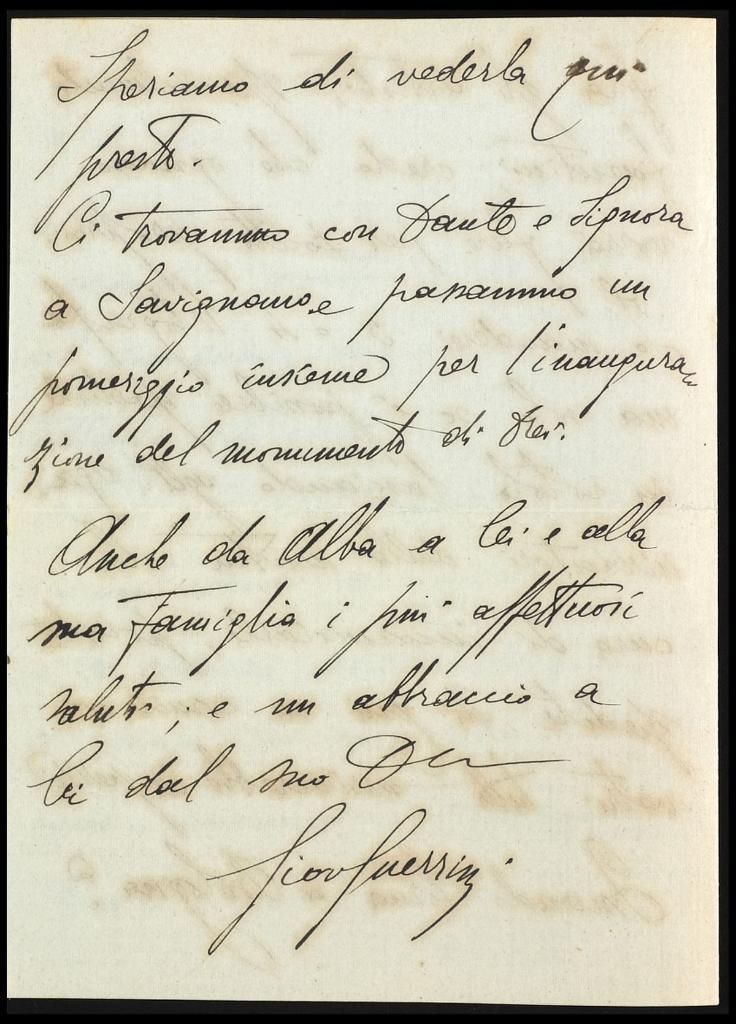 Speriamo di vederla più
presto.
Ci trovammo con Dante e Signora
a Savignano, e passammo un
pomeriggio insieme per l'inaugura-
zione del monumento di Drei.
Anche da Alba a lei e alla
sua famiglia i più affettuosi
saluti; e un abbraccio a
lei dal suo
Giov Guerrini